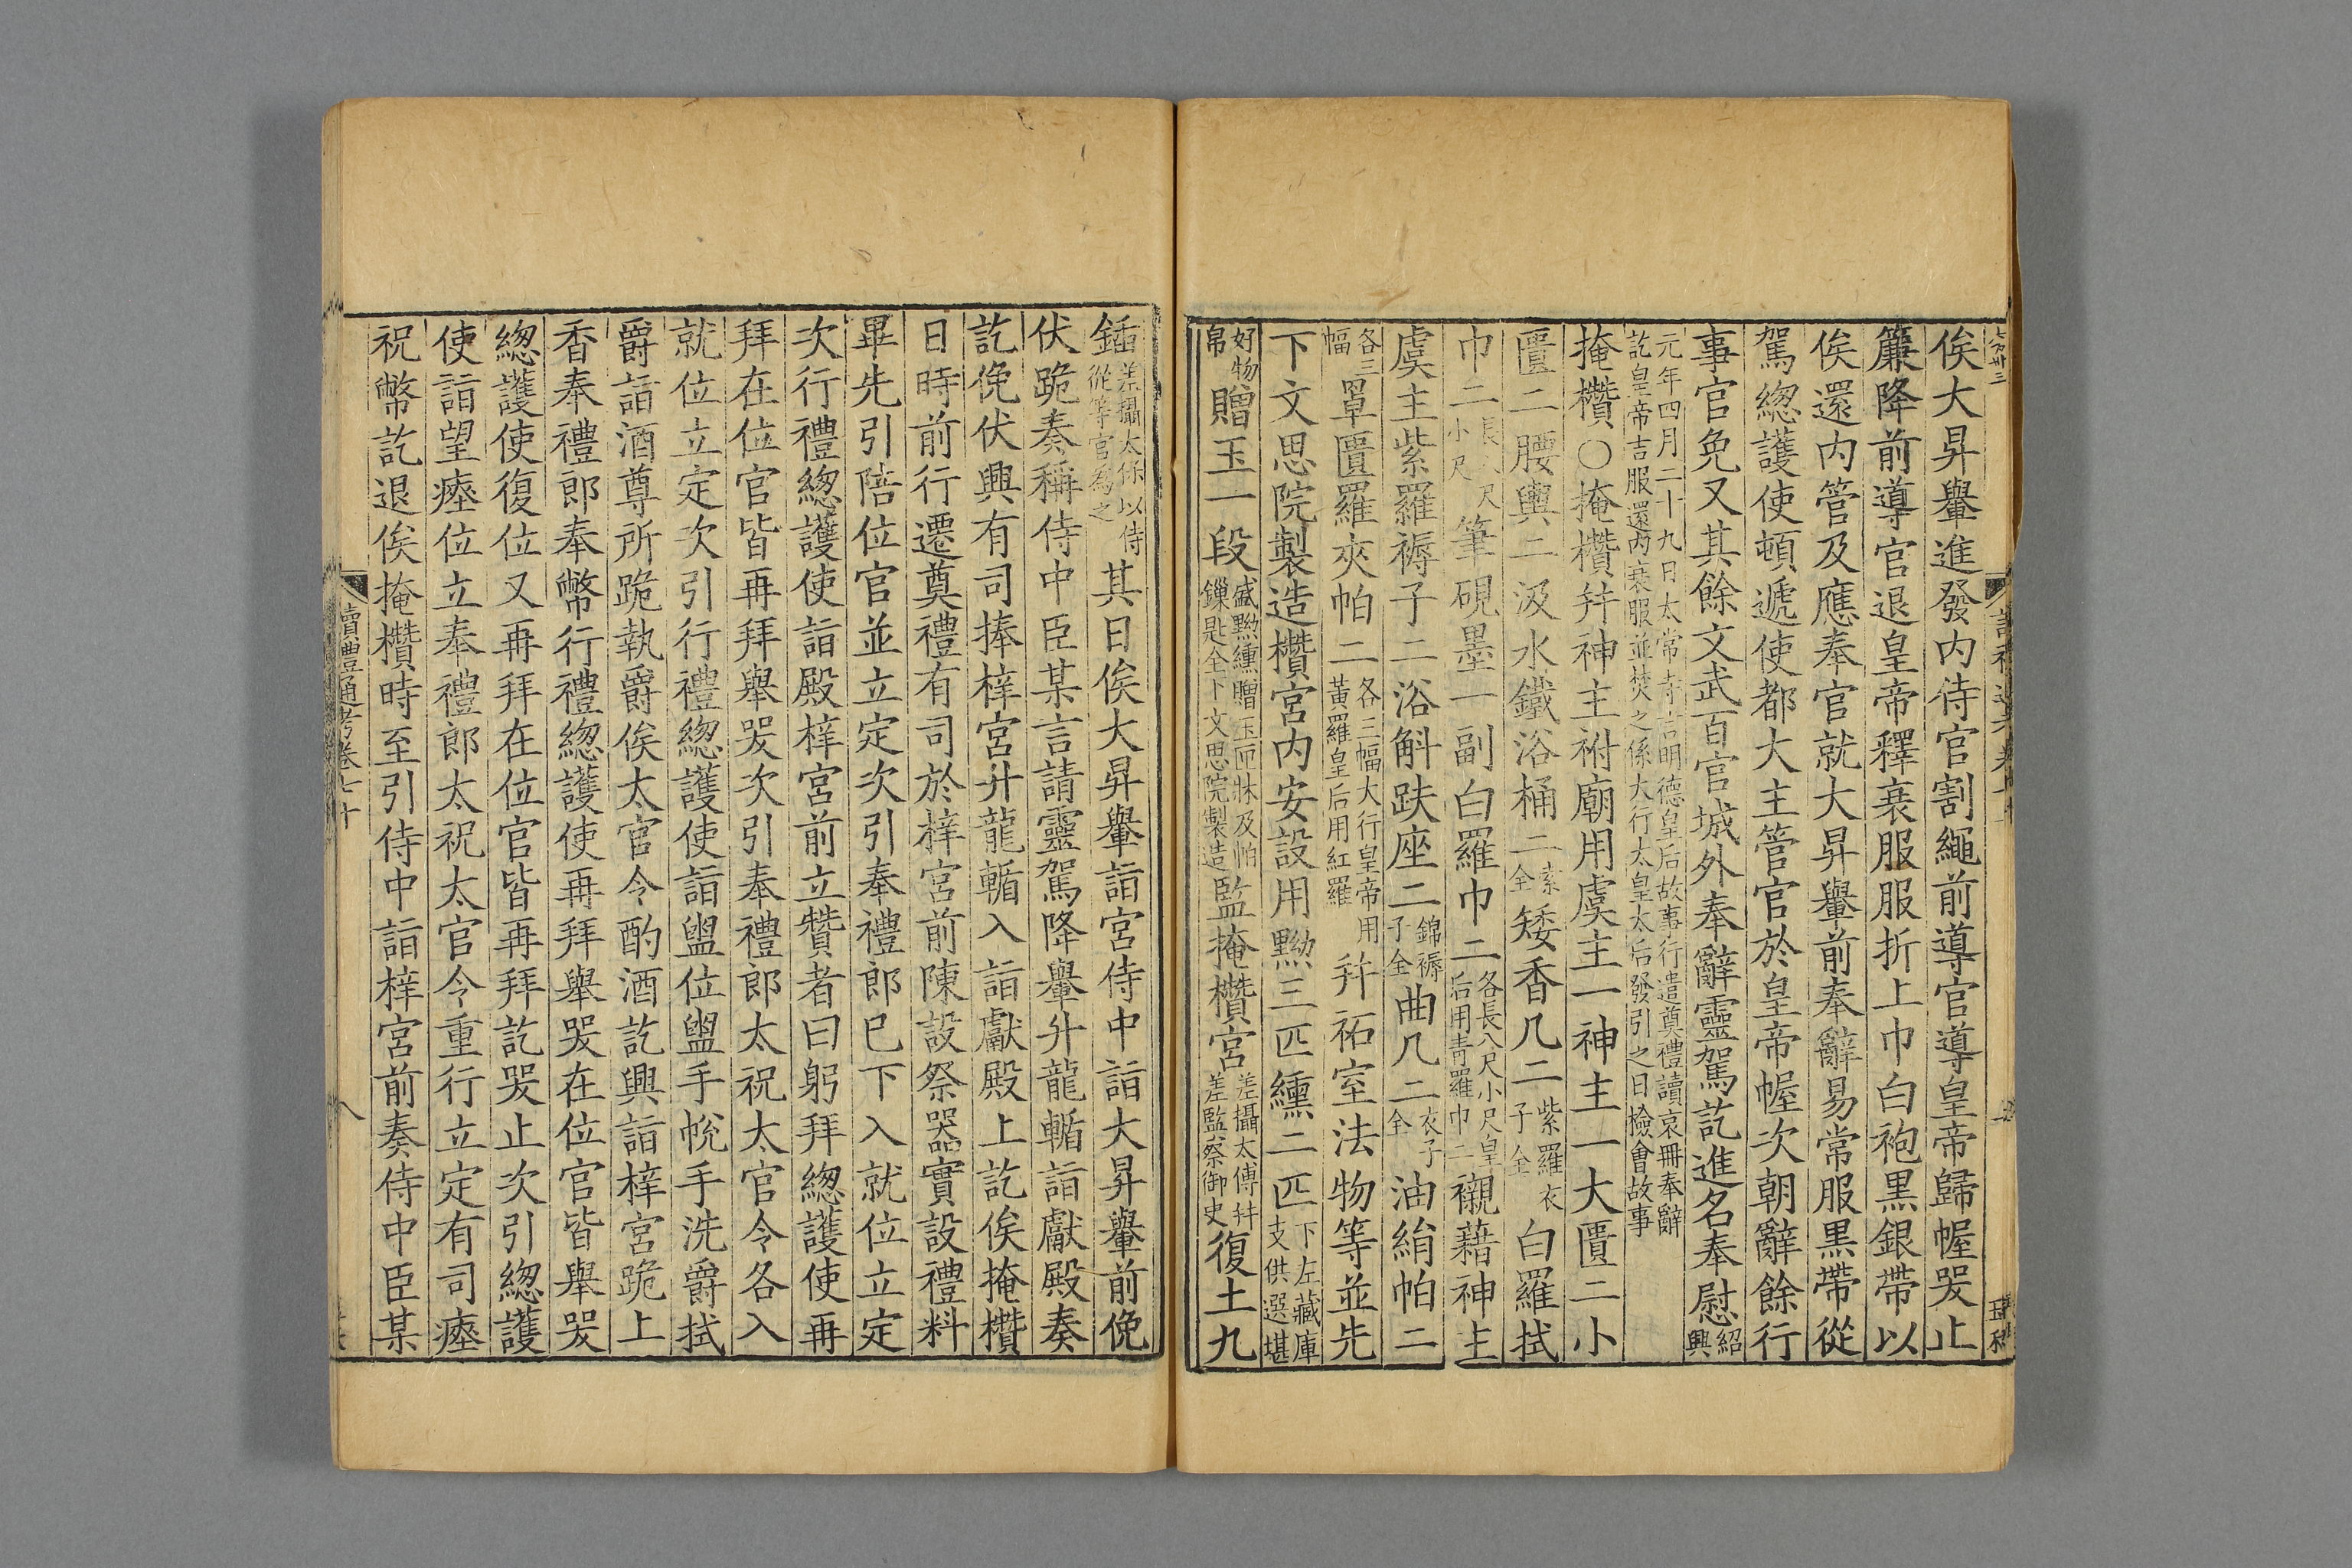 俟大昇轝進發内侍官割繩前導官導皇帝歸幄哭止
簾降前導官退皇帝釋衰服服折上巾白袍黒銀帶以
俟還内管及應奉官就大昇轝前奉辭易常服黒帶從
駕緫護使頓遞使都大主管官於皇帝幄次朝辭餘行
事官免又其餘文武百官城外奉辭靈駕訖進名奉慰紹興
元年四月二十九日太常寺言明德皇后故事行遣奠禮讀哀冊奉辭
訖皇帝吉服還内衰服並焚之係大行太皇太后發引之日檢會故事
掩欑○掩欑并神主祔廟用虞主一神主一大匱二小
匱二腰輿二汲水鐵浴桶二索全矮香几二紫羅衣子全白羅拭
巾二長尺小尺筆硯墨一副白羅巾二各長八尺小尺皇后用青羅巾二襯藉神主
虞主紫羅褥子二浴斛趺座二錦褥子全曲几二衣子全油絹帕二
各三幅罩匱羅夾帕二各三幅大行皇帝用黃羅皇后用紅羅并祏室法物等並先
下文思院製造欑宮内安設用黝三匹纁二匹下左藏庫支供選堪
好物帛贈玉一段盛黝纁贈玉匣牀及帕鏁匙全下文思院製造監掩欑宮差攝太傅并差監察御史復土九
鍤差攝太保以侍從等官為之其日俟大昇轝詣宮侍中詣大昇轝前俛
伏跪奏稱侍中臣某言請靈駕降轝升龍輴詣獻殿奏
訖俛伏興有司捧梓宮升龍輴入詣獻殿上訖俟掩欑
日時前行遷奠禮有司於梓宮前陳設祭器實設禮料
畢先引陪位官並立定次引奉禮郎已下入就位立定
次行禮緫護使詣殿梓宮前立贊者曰躬拜緫護使再
拜在位官皆再拜舉哭次引奉禮郎太祝太官令各入
就位立定次引行禮緫護使詣盥位盥手帨手洗爵拭
爵詣酒尊所跪執爵俟太官令酌酒訖興詣梓宮跪上
香奉禮郎奉幣行禮緫護使再拜舉哭在位官皆舉哭
緫護使復位又再拜在位官皆再拜訖哭止次引緫護
使詣望瘞位立奉禮郎太祝太官令重行立定有司瘞
祝幣訖退俟掩欑時至引侍中詣梓宮前奏侍中臣某
讀禮通考卷七十
八